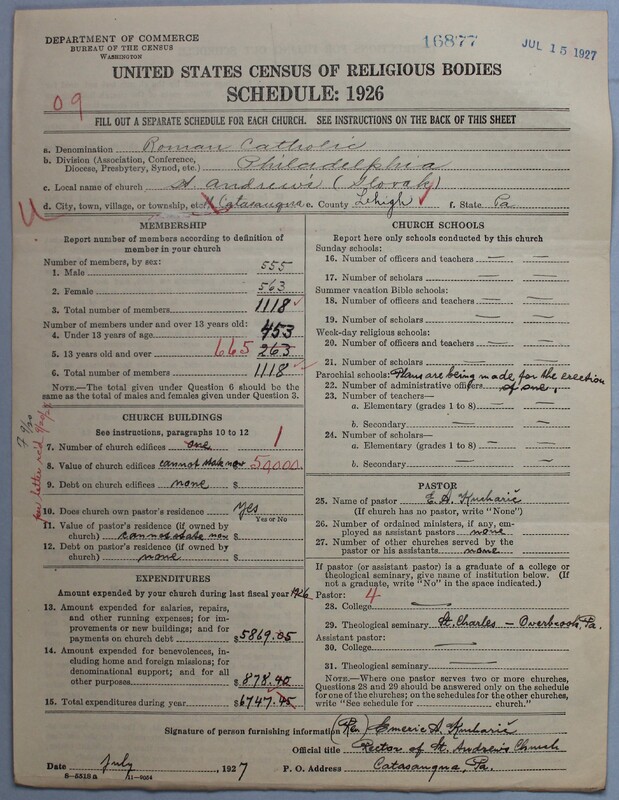 DEPARTMENT OF COMMERCE
BUREAU OF THE CENSUS
WASHINGTON
16877
JUL 15 1927
UNITED STATES CENSUS OF RELIGIOUS BODIES
SCHEDULE: 1926
09
FILL OUT A SEPARATE SCHEDULE FOR EACH CHURCH. SEE INSTRUCTIONS ON THE BACK OF THIS SHEET
a. Denomination Roman Catholic
b. Division (Association, Conference, Diocese, Presbytery, Synod, etc.) Philadelphia
c. Local name of church St. Andrew's (Slovak)
d. City, town, village, or township, etc. Catasauqua e. County Lehigh f. State Pa
MEMBERSHIP
Report number of members according to definition of
member in your church
Number of members, by sex:
1. Male 555
2. Female 563
3. Total number of members 1118
Number of members under and over 13 years old:
4. Under 13 years of age 453
5. 13 years old and over 665 263
6. Total number of members 1118
NOTE.—The total given under Question 6 should be the
same as the total of males and females given under Question 3.
CHURCH BUILDINGS
See instructions, paragraphs 10 to 12
7. Number of church edifices one 1
8. Value of church edifices cannot state now 50,000
9. Debt on church edifices none $
10. Does church own pastor's residence? yes
Yes or No
11. Value of pastor's residence (if owned by
church) cannot state now $
12. Debt on pastor's residence (if owned by
church) none $
per letter rec'd
EXPENDITURES
Amount expended by your church during last fiscal year 1926
13. Amount expended for salaries, repairs,
and other running expenses; for im-
provements or new buildings; and for
payments on church debt $5869.05
14. Amount expended for benevolences, in-
cluding home and foreign missions; for
denominational support; and for all
other purposes $878.40
15. Total expenditures during year $6747.45
CHURCH SCHOOLS
Report here only schools conducted by this church
Sunday schools:
16. Number of officers and teachers — —
17. Number of scholars — —
Summer vacation Bible schools:
18. Number of officers and teachers — —
19. Number of scholars — —
Week-day religious schools:
20. Number of officers and teachers — —
21. Number of scholars — —
Parochial schools: Plans are being made for the erection
22. Number of administrative officers of one.
23. Number of teachers—
a. Elementary (grades 1 to 8) — —
b. Secondary — —
24. Number of scholars—
a. Elementary (grades 1 to 8) — —
b. Secondary — —
PASTOR
25. Name of pastor E. A. Kucharič
(If church has no pastor, write "None")
26. Number of ordained ministers, if any, em-
ployed as assistant pastors none
27. Number of other churches served by the
pastor or his assistants none
If pastor (or assistant pastor) is a graduate of a college or
theological seminary, give name of institution below. (If
not a graduate, write "No" in the space indicated.)
Pastor: 4
28. College —
29. Theological seminary St. Charles – Overbrook, Pa.
Assistant pastor:
30. College —
31. Theological seminary —
NOTE.—Where one pastor serves two or more churches,
Questions 28 and 29 should be answered only on the schedule
for one of the churches; on the schedules for the other churches,
write "See schedule for church."
Signature of person furnishing information (Rev.) Emeric A. Kucharič
Official title Rector of St. Andrew's Church
Date July, 1927 P. O. Address Catasauqua, Pa.
8—5518a 11—9054